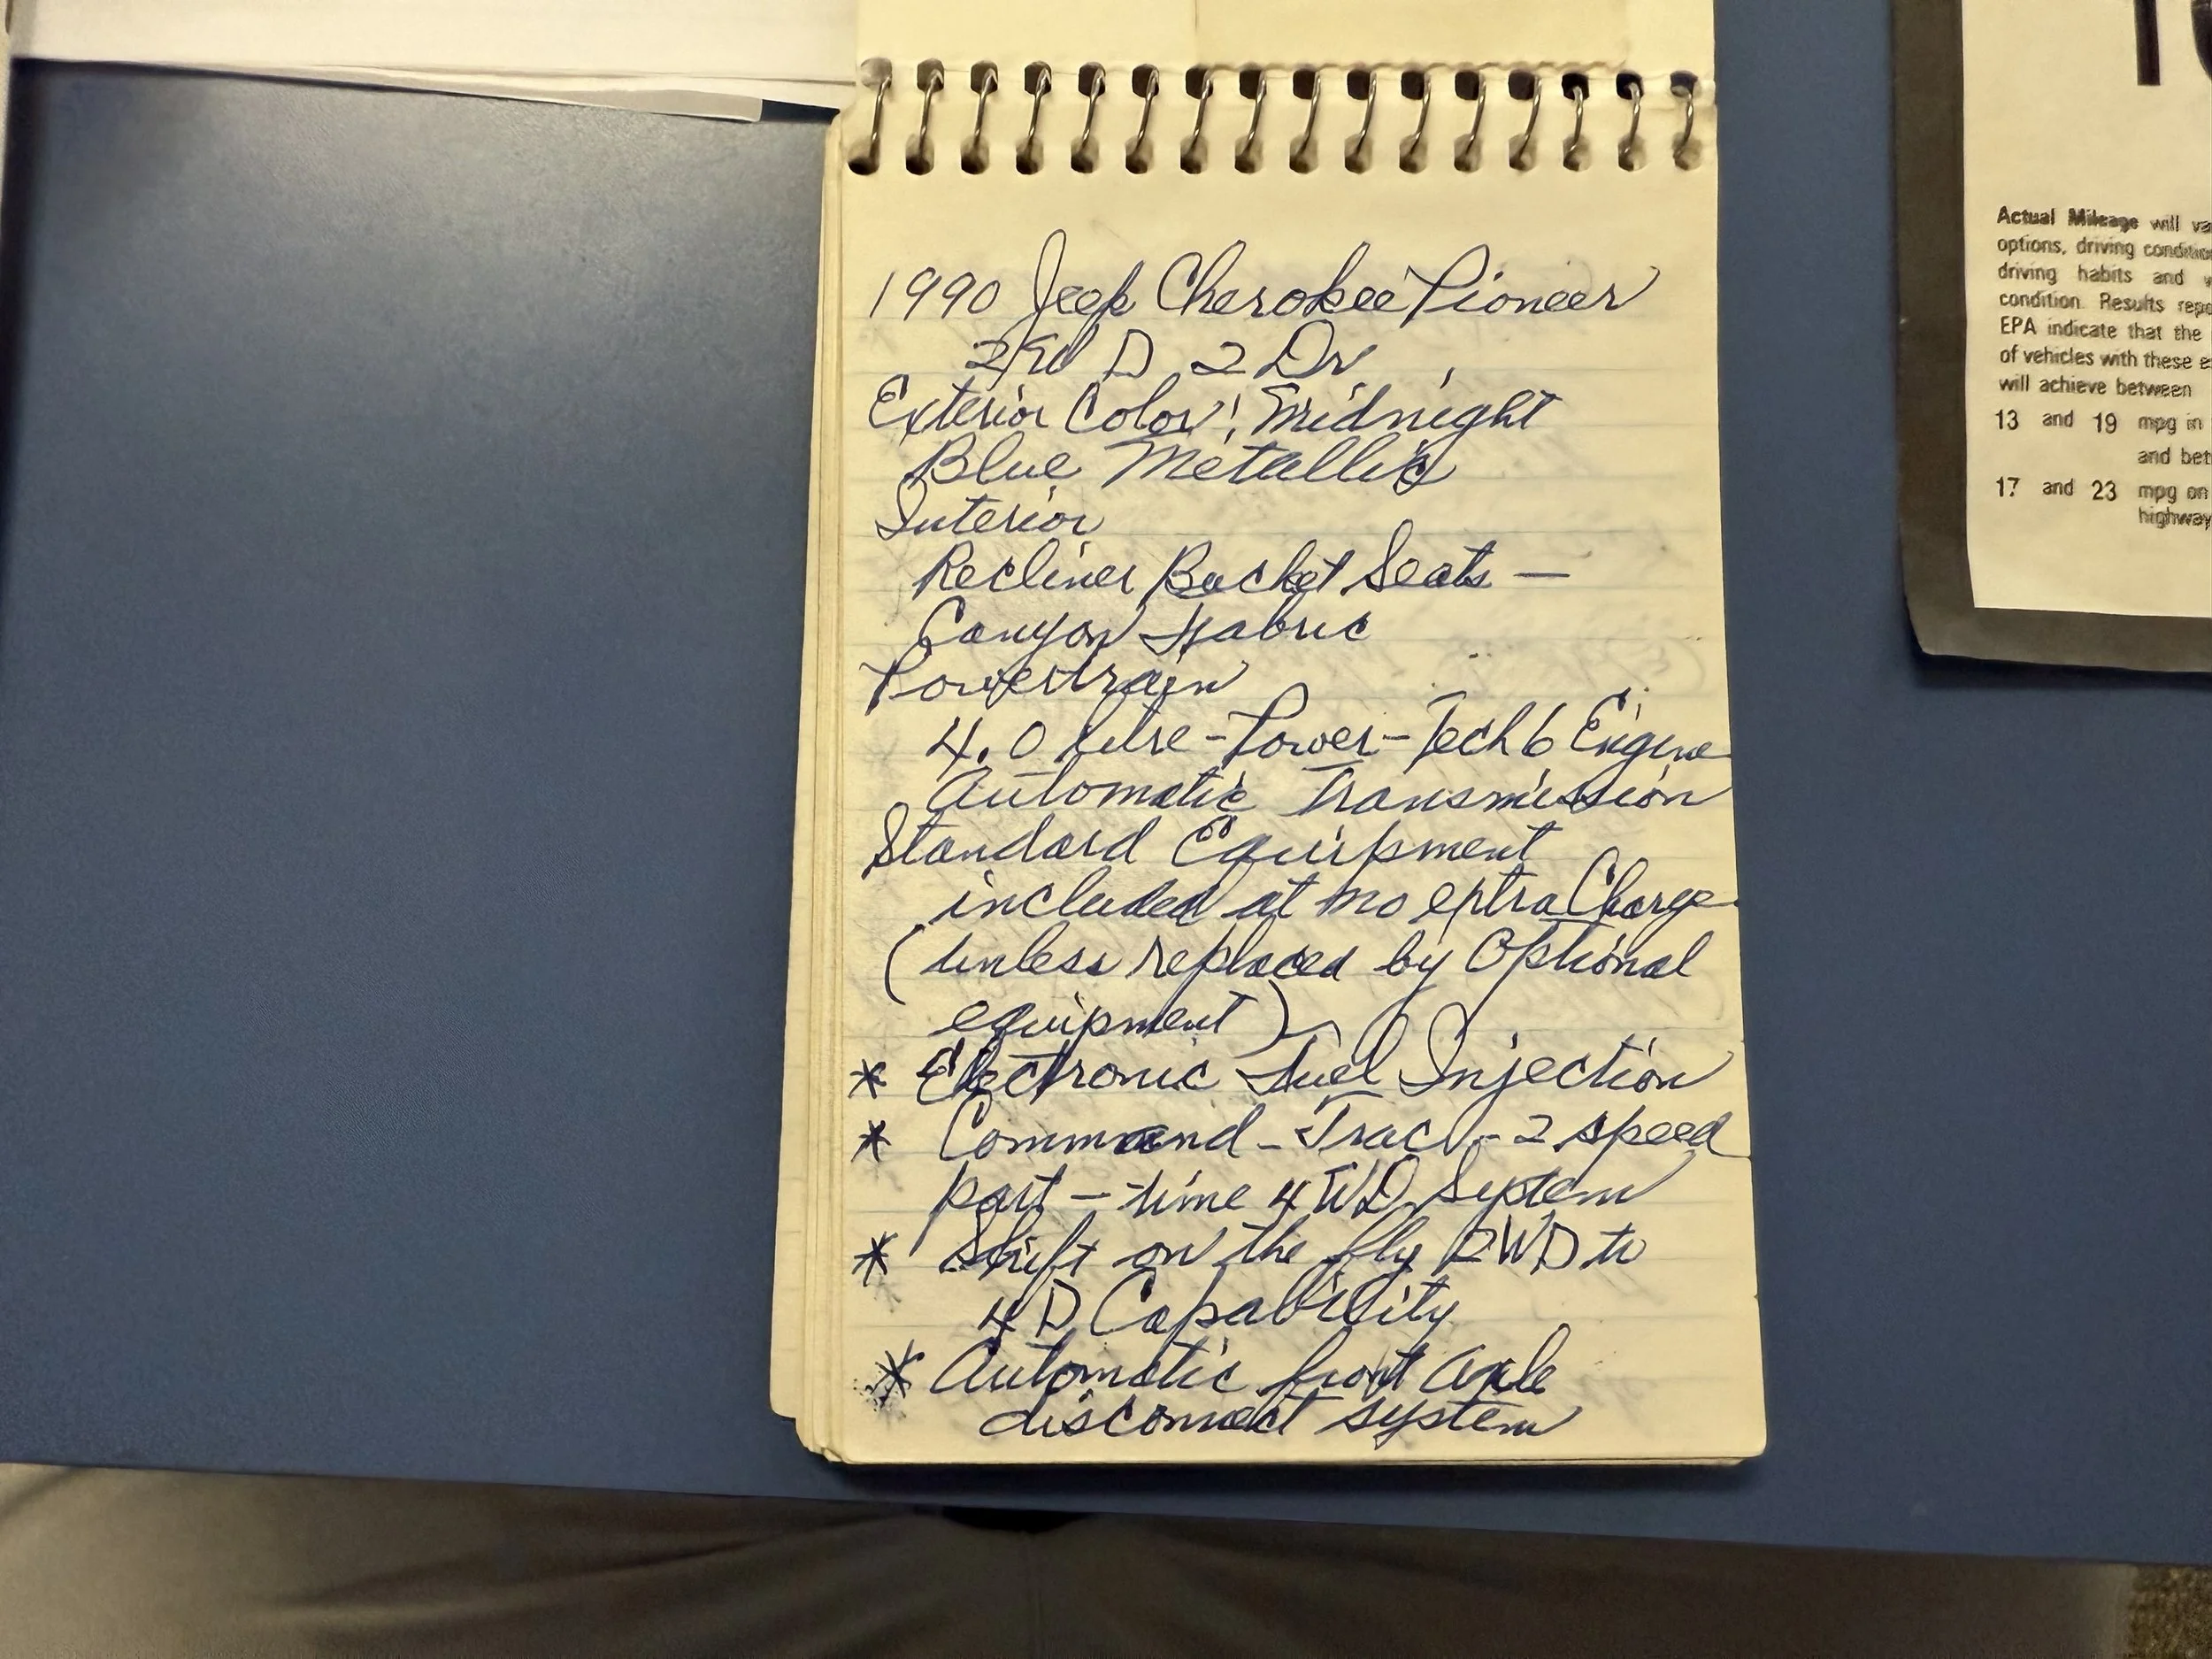 1990 Jeep Cherokee Pioneer
D 2 Dr
Exterior Color: Midnight
Blue Metallic
Interior
Recliner Bucket Seats —
Canyon Fabric
Powertrain
4.0 litre - Power-Tech 6 Engine
Automatic Transmission
Standard Equipment
included at no extra Charge
(unless replaced by Optional
equipment)
* Electronic Fuel Injection
* Command-Trac - 2 speed
part-time 4WD System
* Shift on the fly 2WD to
4D Capability
* Automatic front axle
disconnect system
Actual Mileage will
options, driving
driving habits and
condition. Results
EPA indicate that the
of vehicles with these
will achieve between
13 and 19 mpg in
and
17 and 23 mpg on
highway